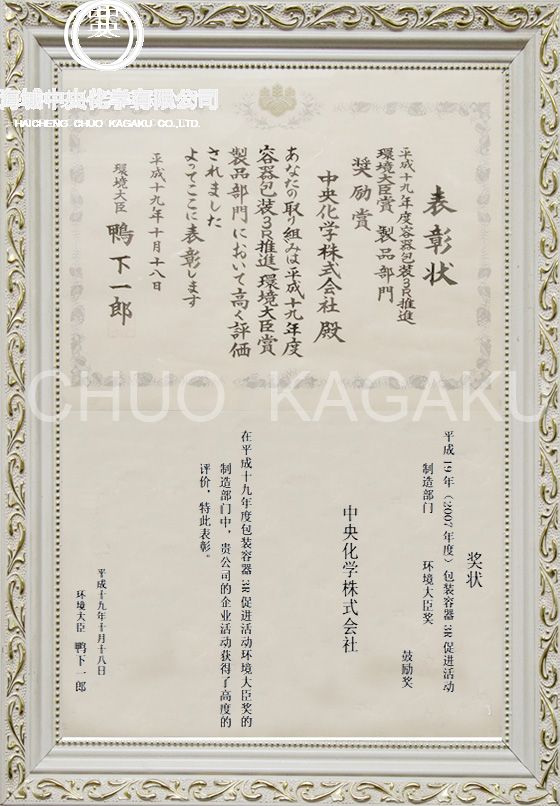 海城中央化学有限公司
HAICHENG CHUO KAGAKU CO.,LTD.
表彰状
平成十九年度容器包装3R推進
環境大臣賞 製品部門
奨励賞
中央化学株式会社 殿
あなたの取り組みは平成十九年度
容器包装3R推進環境大臣賞
製品部門において高く評価
されました
よってここに表彰します
平成十九年十月十八日
環境大臣 鴨下一郎
CHUO KAGAKU
奖状
平成19年（2007年度）包装容器3R促进活动
制造部门 环境大臣奖
鼓励奖
中央化学株式会社
在平成十九年度包装容器3R促进活动环境大臣奖的
制造部门中，贵公司的企业活动获得了高度的
评价，特此表彰。
平成十九年十月十八日
环境大臣 鸭下一郎